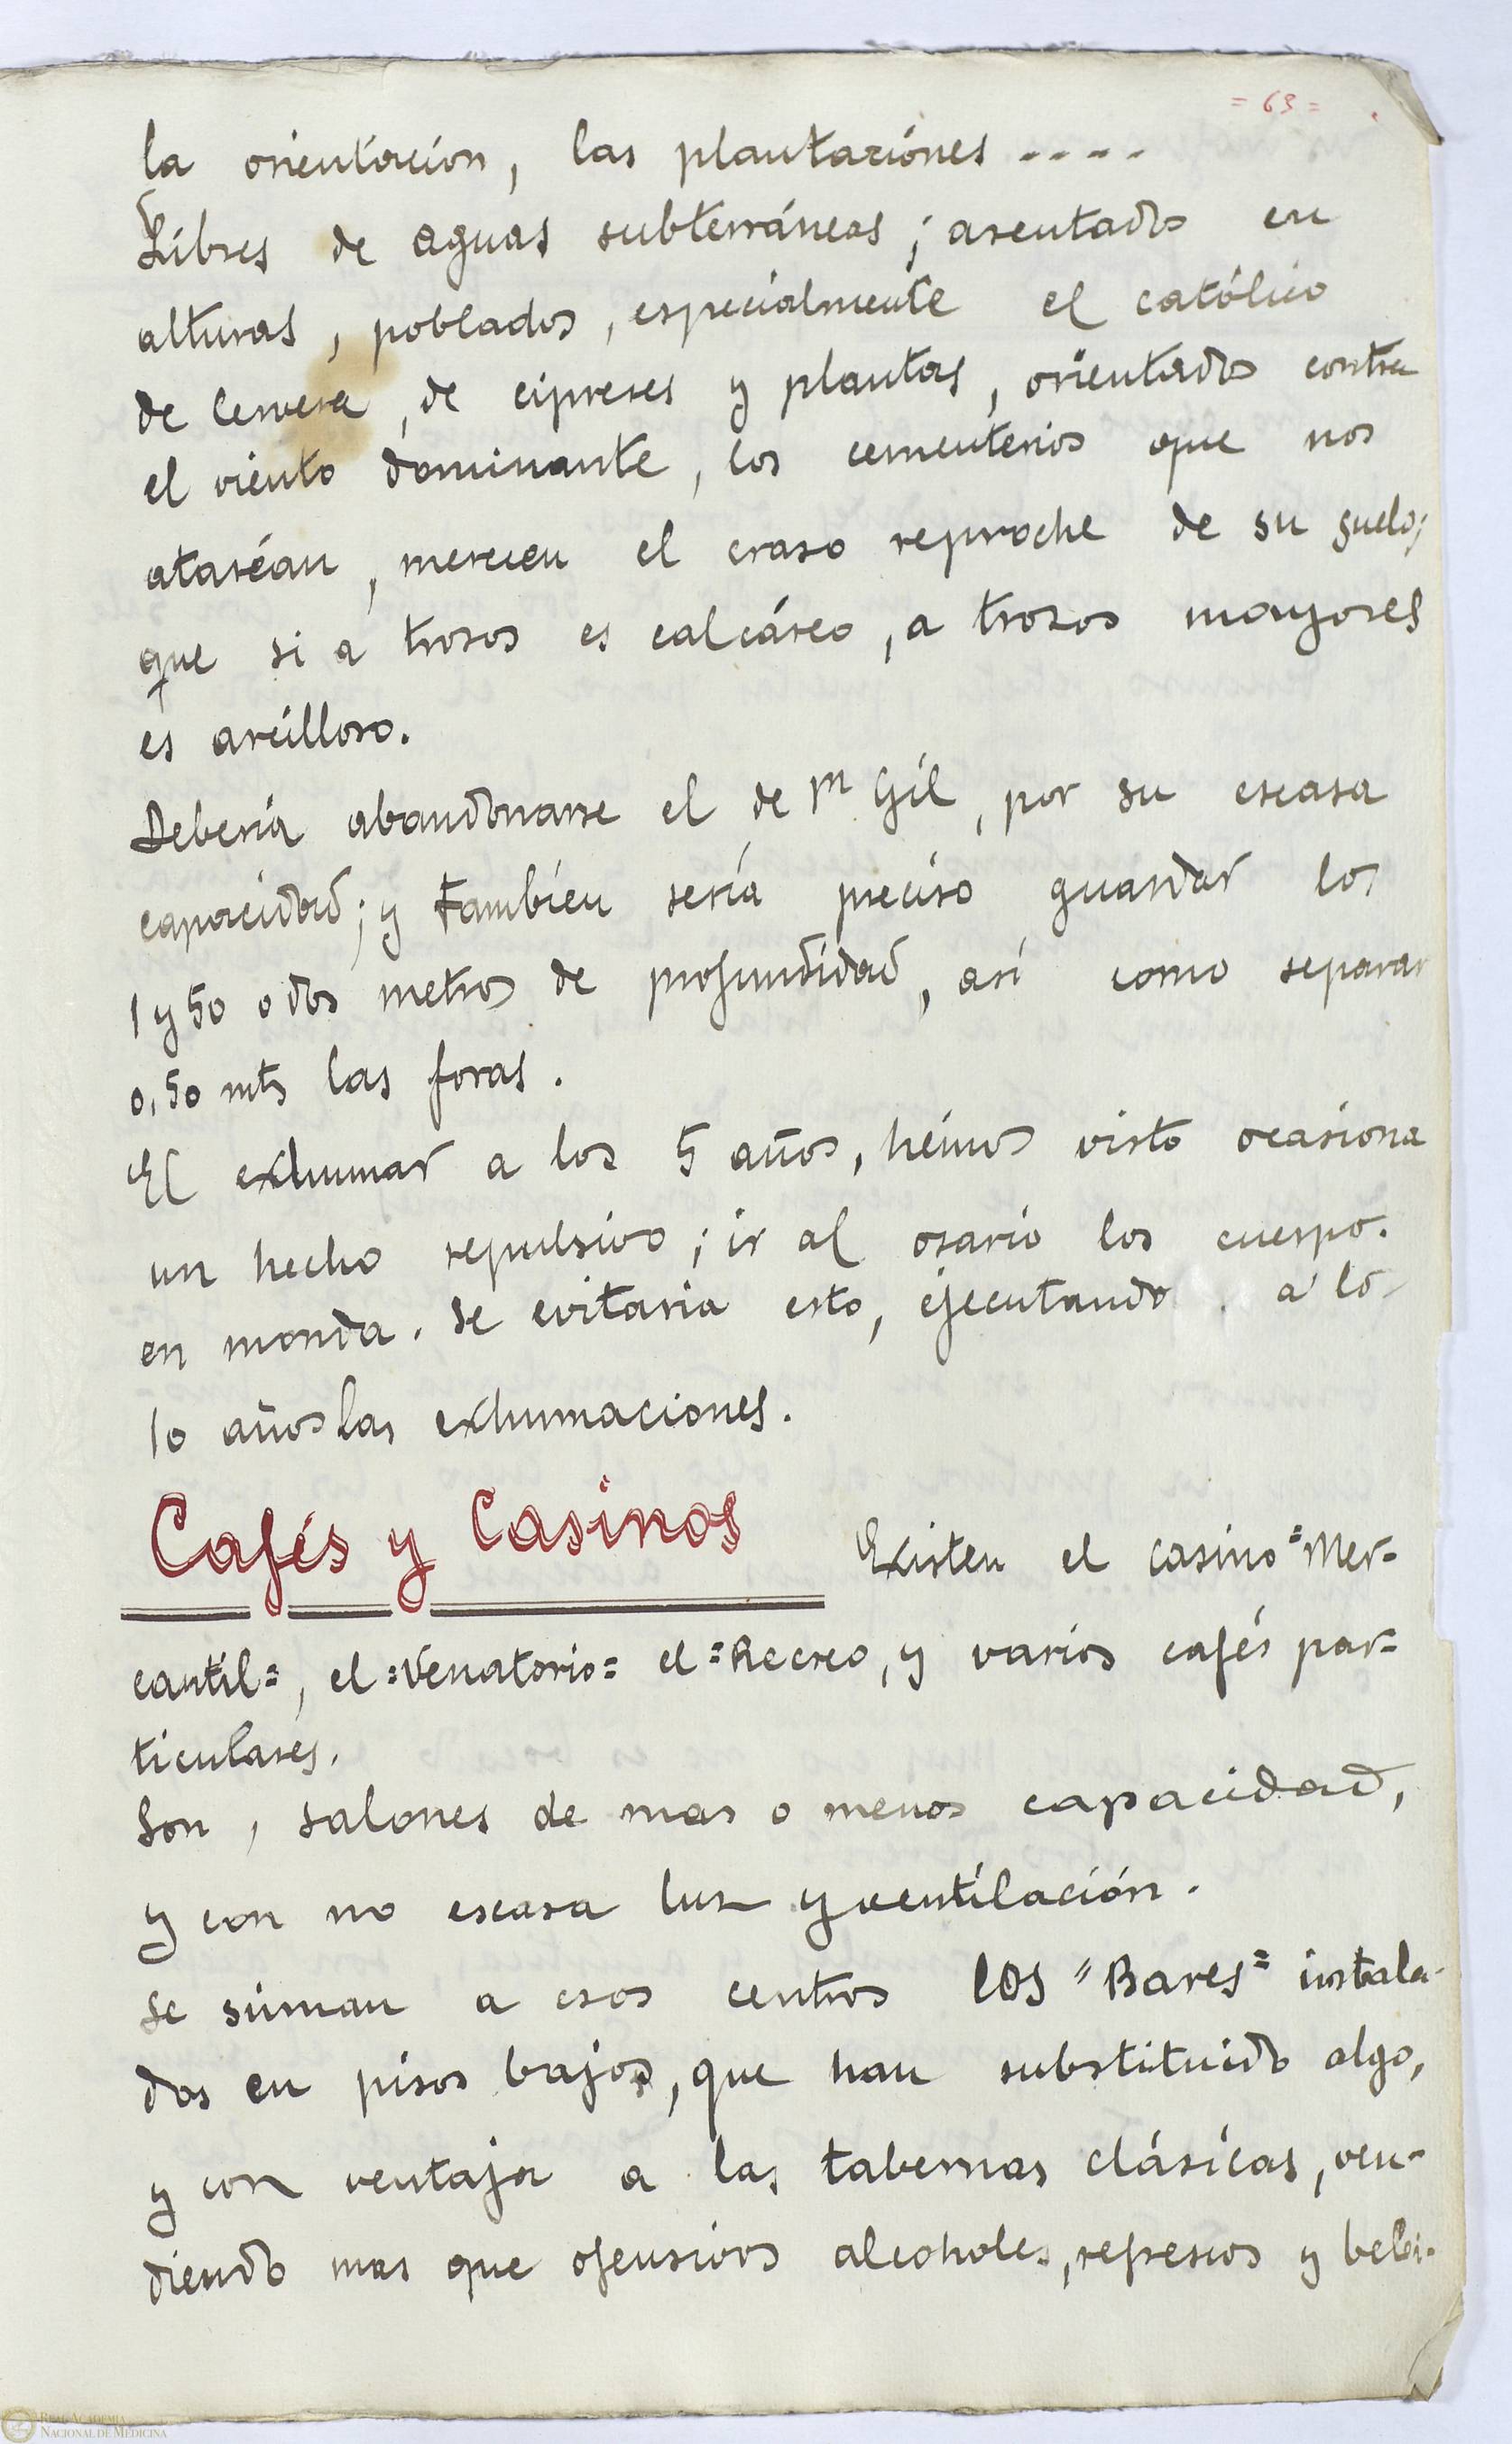 = 63 =
la orientación, las plantaciónes ----
Libres de aguas subterráneas; asentados en
alturas, poblados, especialmente el católico
de Cervera, de cipreses y plantas, orientados contra
el viento dominante, los cementerios que nos
ataréan, merecen el craso reproche de su suelo;
que si a trosos es calcáreo, a trozos mayores
es arcilloso.
Debería abandonarse el de Mn Gil, por su escasa
capacidad; y también sería preciso guardar los
1 y 50 o dos metros de profundidad, así como separar
0,50 mts las fosas.
El exhumar a los 5 años, hémos visto ocasiona
un hecho repulsivo; ir al osario los cuerpo.
en monda. Se evitaria esto, ejecutando a lo
10 años las exhumaciones.
Cafés y Casinos
Existen el casino "Mer=
cantil=, el =Venatorio= el =Recreo, y varios cafés par=
ticulares.
Son, salones de mas o menos capacidad,
y con no escasa luz y ventilación.
Se súman a esos centros los "Bares" instala-
dos en pisos bajos, que han substituido algo,
y con ventaja a las tabernas clásicas, ven-
diendo mas que ofensivos alcoholes, refrescos y bebi-
REAL ACADEMIA
NACIONAL DE MEDICINA